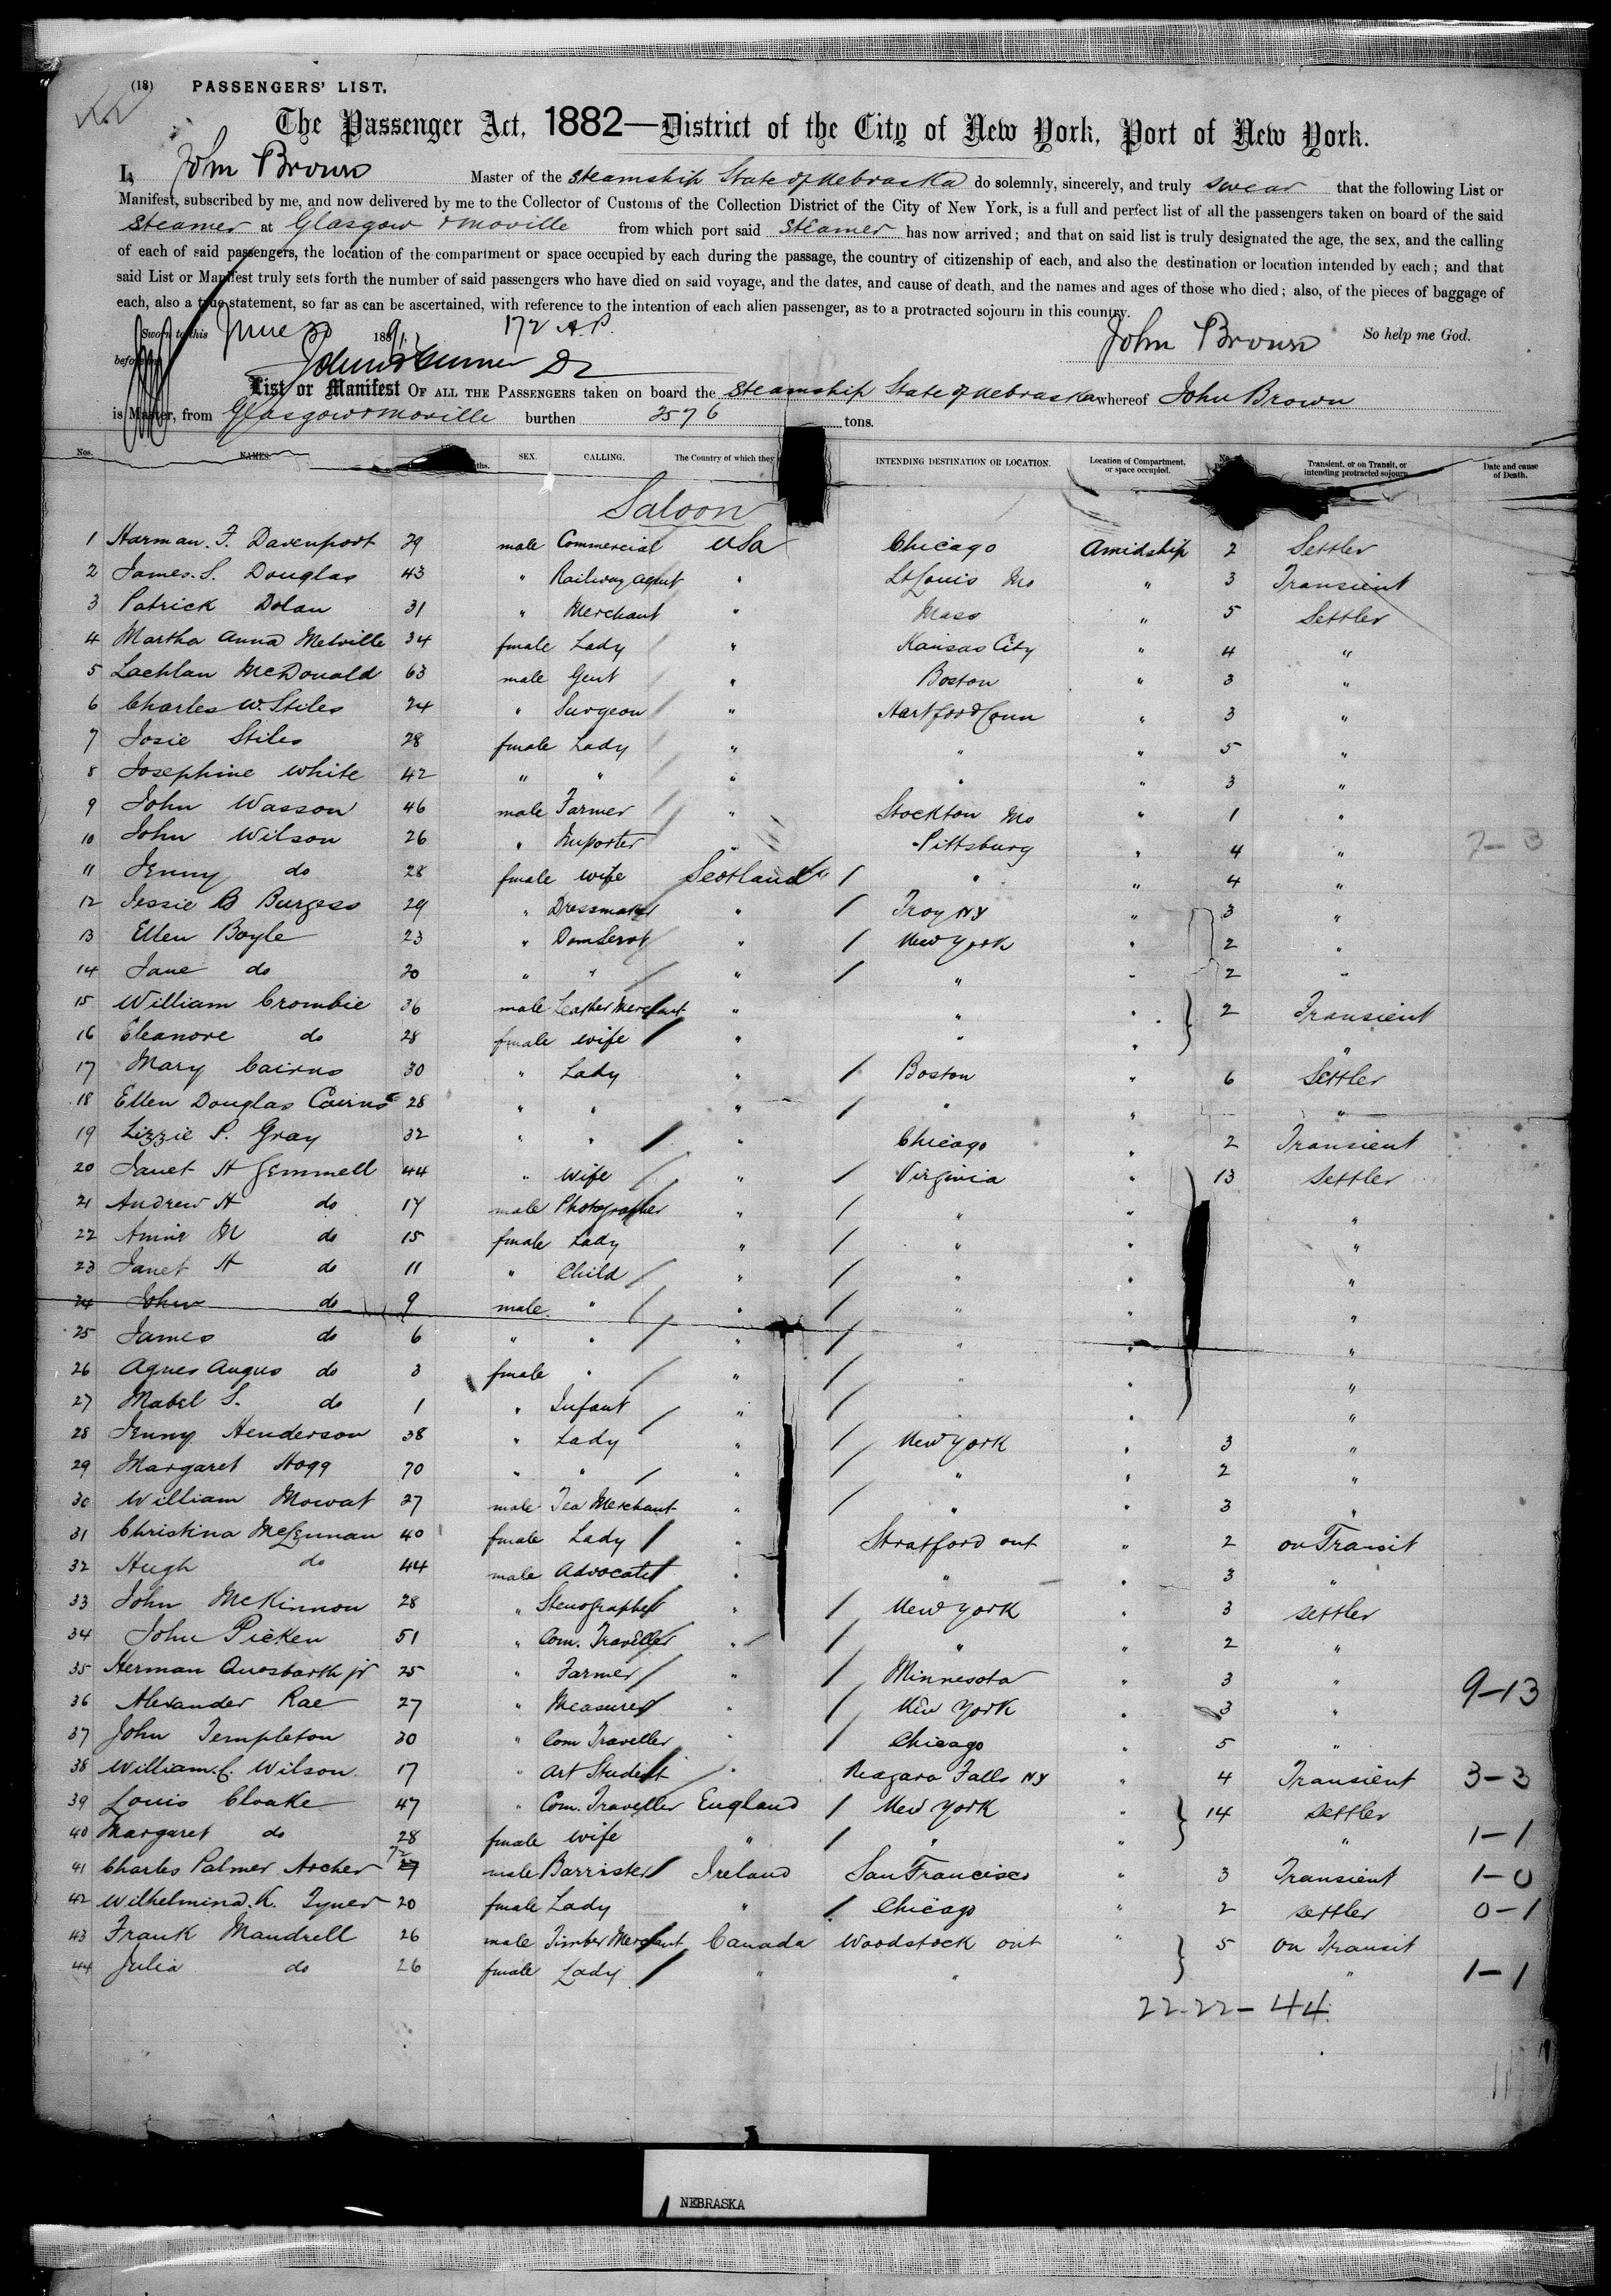 (18) PASSENGERS' LIST.
The Passenger Act, 1882—District of the City of New York, Port of New York.
I, John Brown Master of the Steamship State of Nebraska do solemnly, sincerely, and truly swear that the following List or
Manifest, subscribed by me, and now delivered by me to the Collector of Customs of the Collection District of the City of New York, is a full and perfect list of all the passengers taken on board of the said
Steamer at Glasgow & Moville from which port said Steamer has now arrived; and that on said list is truly designated the age, the sex, and the calling
of each of said passengers, the location of the compartment or space occupied by each during the passage, the country of citizenship of each, and also the destination or location intended by each; and that
said List or Manifest truly sets forth the number of said passengers who have died on said voyage, and the dates, and cause of death, and the names and ages of those who died; also, of the pieces of baggage of
each, also a true statement, so far as can be ascertained, with reference to the intention of each alien passenger, as to a protracted sojourn in this country.
Sworn to this June 30 1891 172 A.P. John Brown So help me God.
before me
List or Manifest OF ALL THE PASSENGERS taken on board the Steamship State of Nebraska whereof John Brown
is Master, from Glasgow & Moville burthen 2576 tons.
Nos. NAMES. SEX. CALLING. The Country of which they INTENDING DESTINATION OR LOCATION. Location of Compartment, or space occupied. No. Transient, or on Transit, or intending protracted sojourn. Date and cause of Death.
Saloon
1 Harman. F. Davenport 29 male Commercial USa Chicago Amidship 2 Settler
2 James. S. Douglas 43 " Railway agent " St Louis Mo " 3 Transient
3 Patrick Dolan 31 " Merchant " Mass " 5 Settler
4 Martha Anna Melville 34 female Lady " Kansas City " 4 "
5 Lachlan McDonald 63 male Gent " Boston " 3 "
6 Charles W. Stiles 24 " Surgeon " Hartford Conn " 3 "
7 Josie Stiles 28 female Lady " " " 5 "
8 Josephine White 42 " " " " " 3 "
9 John Wasson 46 male Farmer " Stockton Mo " 1 "
10 John Wilson 26 " Importer " Pittsburg " 4 " 7-3
11 Jenny do 28 female wife Scotland " " 4 "
12 Jessie B Burgess 29 " Dressmaker " Troy NY " 3 "
13 Ellen Boyle 23 " Dom Servt " New York " 2 "
14 Jane do 20 " " " " " 2 "
15 William Crombie 36 male Leather Merchant " " " 2 Transient
16 Eleanore do 28 female wife " " " "
17 Mary Cairns 30 " Lady " Boston " 6 Settler
18 Ellen Douglas Cairns 28 " " " " " "
19 Lizzie P. Gray 32 " " " Chicago " 2 Transient
20 Janet H Gemmell 44 " wife " Virginia " 13 Settler
21 Andrew H do 17 male Photographer " " " "
22 Annie M do 15 female Lady " " " "
23 Janet H do 11 " Child " " " "
24 John do 9 male " " " " "
25 James do 6 " " " " " "
26 Agnes Angus do 3 female " " " " "
27 Mabel S. do 1 " Infant " " " "
28 Jenny Henderson 38 " Lady " New York " 3 "
29 Margaret Hogg 70 " " " " " 2 "
30 William Mowat 27 male Tea Merchant " " " 3 "
31 Christina McLennan 40 female Lady " Stratford ont " 2 on Transit
32 Hugh do 44 male Advocate " " " 3 "
33 John McKinnon 28 " Stenographer " New York " 3 settler
34 John Picken 51 " Com. Traveller " " " 2 "
35 Herman Quosbarth jr 25 " Farmer " Minnesota " 3 "
36 Alexander Rae 27 " Measurer " New York " 3 " 9-13
37 John Templeton 30 " Com Traveller " Chicago " 5 "
38 William. C. Wilson 17 " Art Student " Niagara Falls NY " 4 Transient 3-3
39 Louis Cloake 47 " Com. Traveller England New York " 14 settler
40 Margaret do 28 female wife " " " " 1-1
41 Charles Palmer Archer 72 male Barrister Ireland San Francisco " 3 Transient 1-0
42 Wilhelmina. K. Tyner 20 female Lady " Chicago " 2 settler 0-1
43 Frank Mandrell 26 male Timber Merchant Canada Woodstock ont " 5 on Transit
44 Julia do 26 female Lady " " " 1-1
22-22-44
NEBRASKA